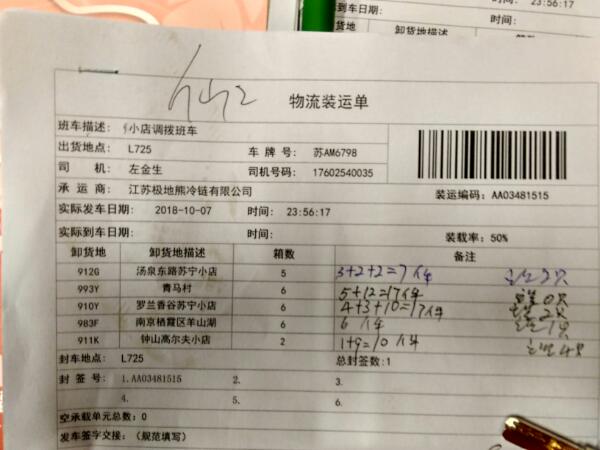 23:56:17
实际到车日期: 时间:
卸货地 卸货地描述
物流装运单
班车描述: 小店调拨班车
出货地点: L725 车 牌 号: 苏AM6798
司 机: 左金生 司机号码: 17602540035
承 运 商: 江苏极地熊冷链有限公司 装运编码: AA03481515
实际发车日期: 2018-10-07 时间: 23:56:17
实际到车日期: 时间: 装载率: 50%
卸货地 卸货地描述 箱数 备注
912G 汤泉东路苏宁小店 5 3+2+2=7件
993Y 青马村 6 5+12=17件
910Y 罗兰香谷苏宁小店 6 4+3+10=17件
983F 南京栖霞区羊山湖 6 6件
911K 钟山高尔夫小店 2 1+9=10件
封车地点: L725 总封签数:1
封 签 号: 1.AA03481515 2. 3.
4. 5. 6.
空承载单元总数: 0
发车签字交接: (规范填写)